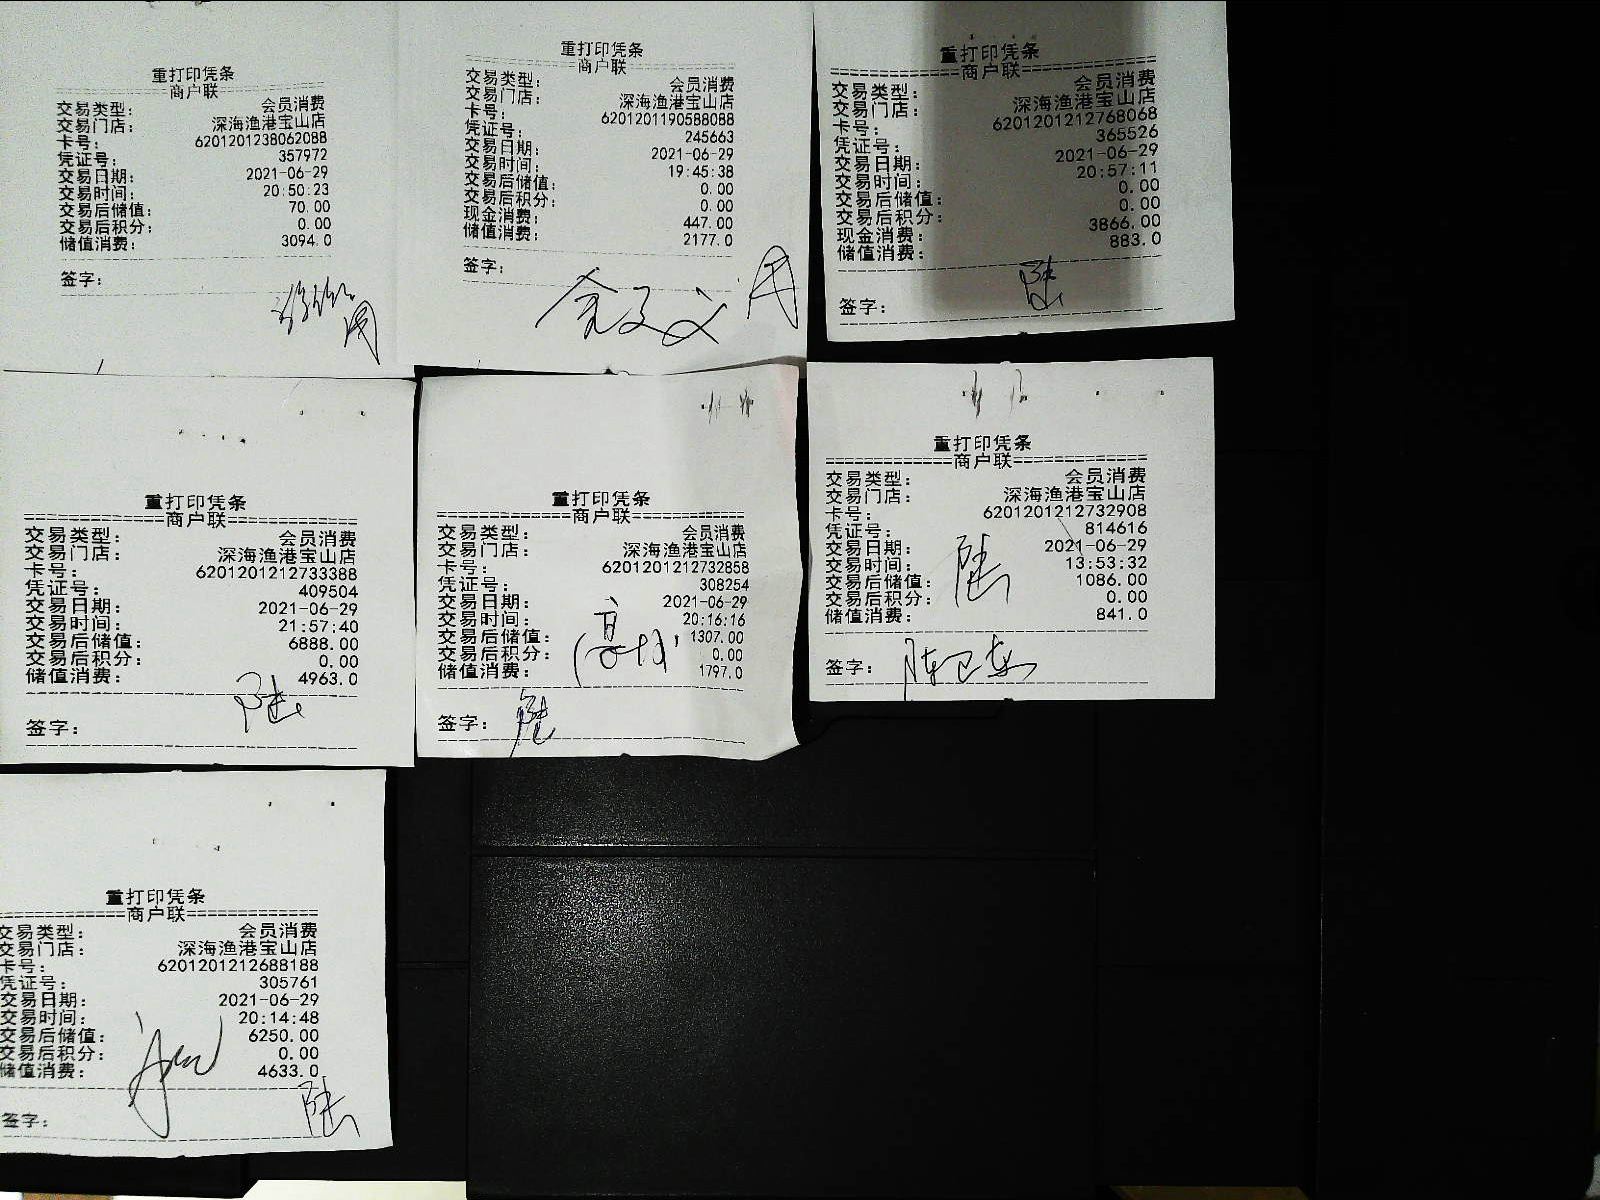 重打印凭条
============商户联============
交易类型: 会员消费
交易门店: 深海渔港宝山店
卡号: 6201201238062088
凭证号: 357972
交易日期: 2021-06-29
交易时间: 20:50:23
交易后储值: 70.00
交易后积分: 0.00
储值消费: 3094.0
签字:
重打印凭条
============商户联============
交易类型: 会员消费
交易门店: 深海渔港宝山店
卡号: 6201201190588088
凭证号: 245663
交易日期: 2021-06-29
交易时间: 19:45:38
交易后储值: 0.00
交易后积分: 0.00
现金消费: 447.00
储值消费: 2177.0
签字:
重打印凭条
============商户联============
交易类型: 会员消费
交易门店: 深海渔港宝山店
卡号: 6201201212768068
凭证号: 365526
交易日期: 2021-06-29
交易时间: 20:57:11
交易后储值: 0.00
交易后积分: 0.00
现金消费: 3866.00
储值消费: 883.0
陆
签字:
重打印凭条
============商户联============
交易类型: 会员消费
交易门店: 深海渔港宝山店
卡号: 6201201212733388
凭证号: 409504
交易日期: 2021-06-29
交易时间: 21:57:40
交易后储值: 6888.00
交易后积分: 0.00
储值消费: 4963.0
陆
签字:
重打印凭条
============商户联============
交易类型: 会员消费
交易门店: 深海渔港宝山店
卡号: 6201201212732858
凭证号: 308254
交易日期: 2021-06-29
交易时间: 20:16:16
交易后储值: 1307.00
交易后积分: 0.00
储值消费: 1797.0
签字: 陆
重打印凭条
============商户联============
交易类型: 会员消费
交易门店: 深海渔港宝山店
卡号: 6201201212732908
凭证号: 814616
交易日期: 2021-06-29
交易时间: 13:53:32
交易后储值: 1086.00
交易后积分: 0.00
储值消费: 841.0
陆
签字:
重打印凭条
============商户联============
交易类型: 会员消费
交易门店: 深海渔港宝山店
卡号: 6201201212688188
凭证号: 305761
交易日期: 2021-06-29
交易时间: 20:14:48
交易后储值: 6250.00
交易后积分: 0.00
储值消费: 4633.0
陆
签字: